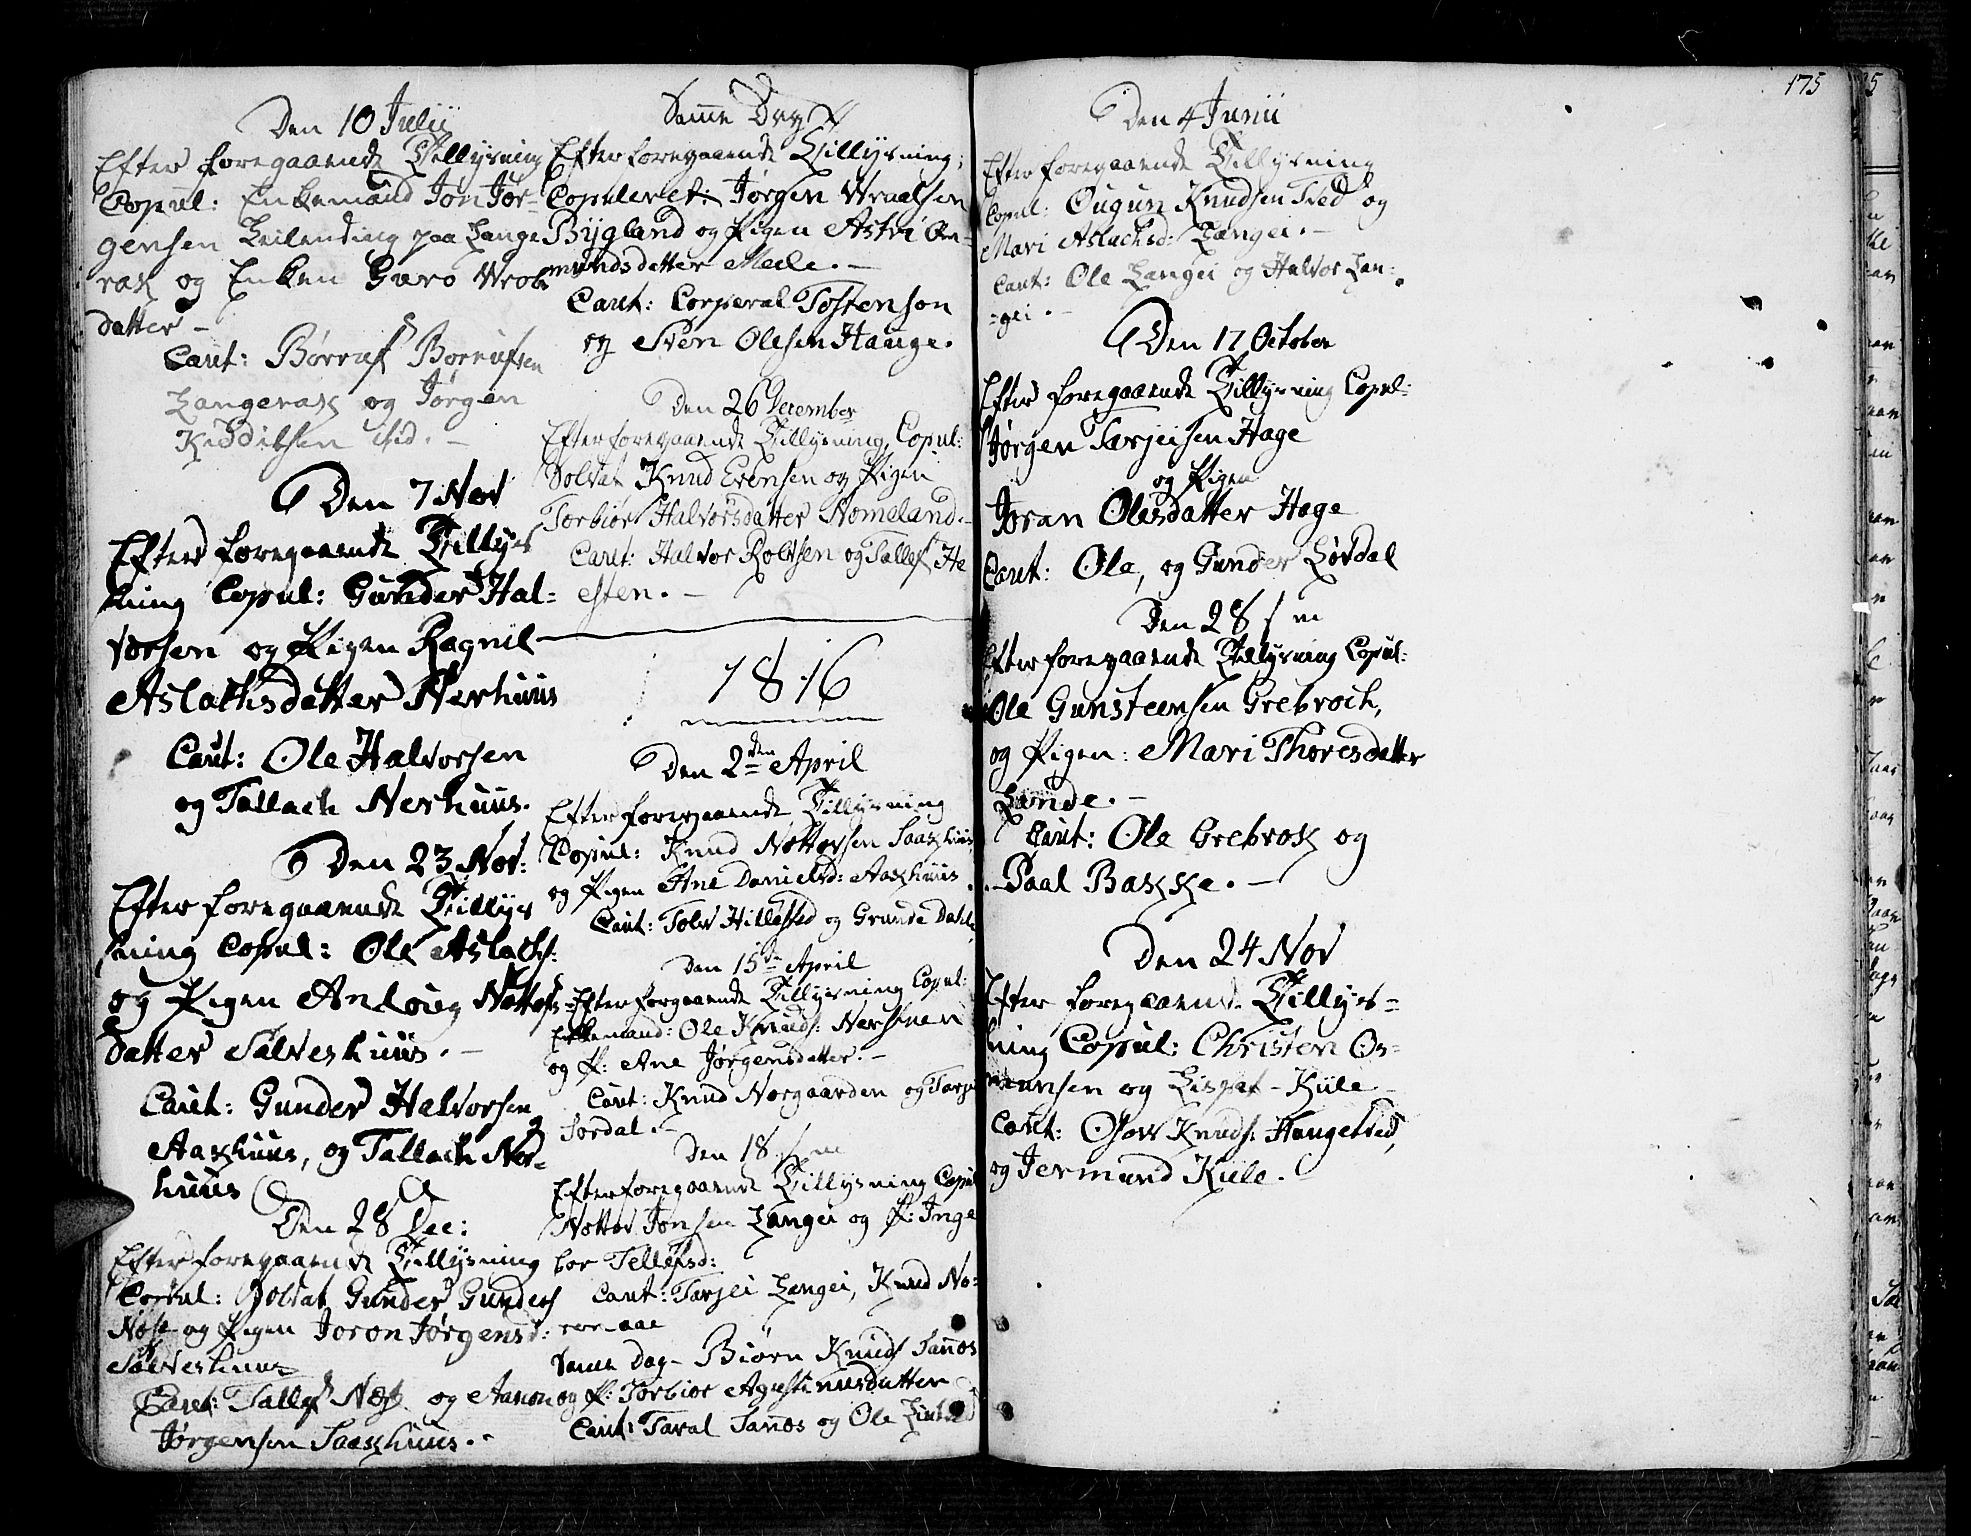 Den 10 Julii
Efter foregaaende Tillysning
Copul: Enkemand Jon Jør-
gensen Leilending paa Lange
rak og Enken Gæro Wrols
datter -
Caut: Børruf Børrufsen
Langerak og Jørgen
Kiddilsen ibid. -
Den 7 Nov
Efter foregaaende Tillys
ning Copul: Gunder Hal=
vorsen og Pigen Ragnil
Aslachsdatter Nerhuus
Caut: Ole Halvorsen
og Tallach Nerhuus.
Den 23 Nov:
Efter foregaaende Tillys
ning Copul: Ole Aslachs:
og Pigen Anlaug Nottofs=
datter Salveshuus. -
Caut: Gunder Halvorsen
Aaskhuus, og Tallach Ner-
huus
Den 28 Dec:
Efter foregaaende Tillysning
Copul: Soldat Gunder Gunders
Nose og Pigen Joron Jørgensd:
Salveshuus
Caut: Tallef Næss og Aanon
Jørgensen Saaskhuus. -
Samme Dag
Efter foregaaende Tillysning,
Copuleret: Jørgen Wraalsen
Bygland og Pigen Astri Øn-
mundsdatter Meele. -
Caut: Corperal Tostenson
og Sven Olesen Hauge.
Den 26 December
Efter foregaaende Tillysning, Copul:
Soldat Knud Evensen og Pigen
Torbior Halvorsdatter Nomeland. -
Caut: Halvor Rolvsen og Tallef He
esten. -
1816
Den 2den April
Efter foregaaende Tillysning
Copul: Knud Nottovsen Saaskhuus
og Pigen Ane Danielsd: Aaskhuus.
Caut: Tolv Hillestad og Grunde Dahle
Den 15de April
Efter forgaaende Tillysning Copul:
Enkemand: Ole Knuds: Nerstenen
og P: Ane Jørgensdatter. -
Caut: Knud Norgaarden og Tarje
Sordal. -
Den 18
Efter foregaaende Tillysning Copul
Nottov Jonsen Langei og P: Inge
bor Tellefsd:
Caut: Tarjei Langei, Knud No-
Same Dag - Biørn Knuds Sannæs
og P: Torbior Agustinusdatter
Caut: Taral Sannæs og Ole
175
Den 4 Junii
Efter foregaaende Tillysning
Copul: Ougun Knudsen Tved og
Mari Aslachsd: Langei. -
Caut: Ole Langei og Halvor Lan-
=gei. -
Den 17 October
Efter foregaaende Tillysning Copul:
Jørgen Tarjeisen Hage
og Pigen
Joran Olesdatter Hage
Caut: Ole, og Gunder Løvdal
Den 28
Efter foregaaende Tillysning Copul:
Ole Gunsteensen Grebroch,
og Pigen: Mari Thoresdatter
Lande. -
Caut: Ole Grebrok og
Paal Bakke. -
Den 24 Nov
Efter foregaaende Tillys=
ning Copul: Christen Os=
mansen og Lispet - Kiile -
Caut: Osov Knuds: Haugestad,
og Jermund Kiile. -